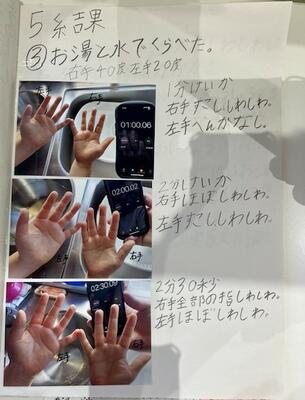 5 結果
③お湯と水でくらべた。
右手40度左手20度
右手
左手
01:00.06
1分けいか
右手すこししわしわ。
左手へんかなし。
02:00.02
右手
左手
2分けいか
右手ほぼしわしわ。
左手すこししわしわ。
02:30.09
左手
右手
2分30秒
右手全部の指しわしわ。
左手ほぼしわしわ。